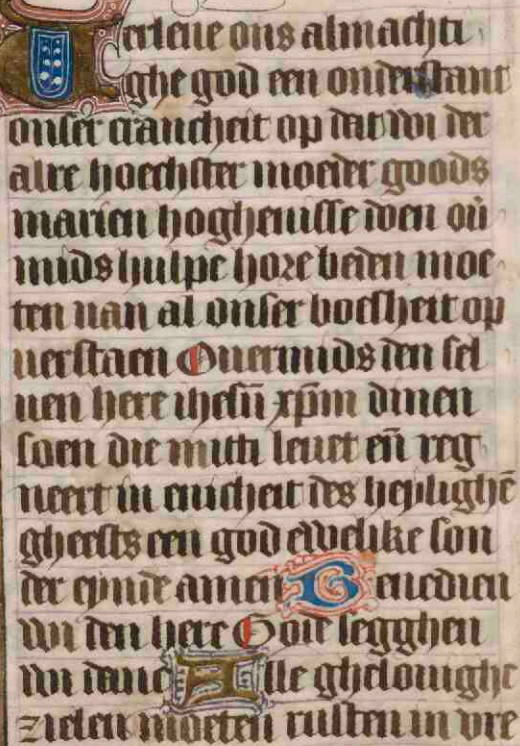 Verleue ons almachti
ghe god een onderstant
onser cranckheit op dat wi der
alre hoechster moeder goods
marien hoghenisse doen oū
mids hulpe hore beden moe
ten van al onser boesheit op
uerstaen Ouermids den sel
uen here ihesū xp̄m dinen
soen die mitti leuet en̄ reg
neert in enicheit des heylighē
gheests een god ewelike son
der eynde amen Benedien
wi den here Gode segghen
wi danc Alle ghelouighe
zielen moeten rusten in vre